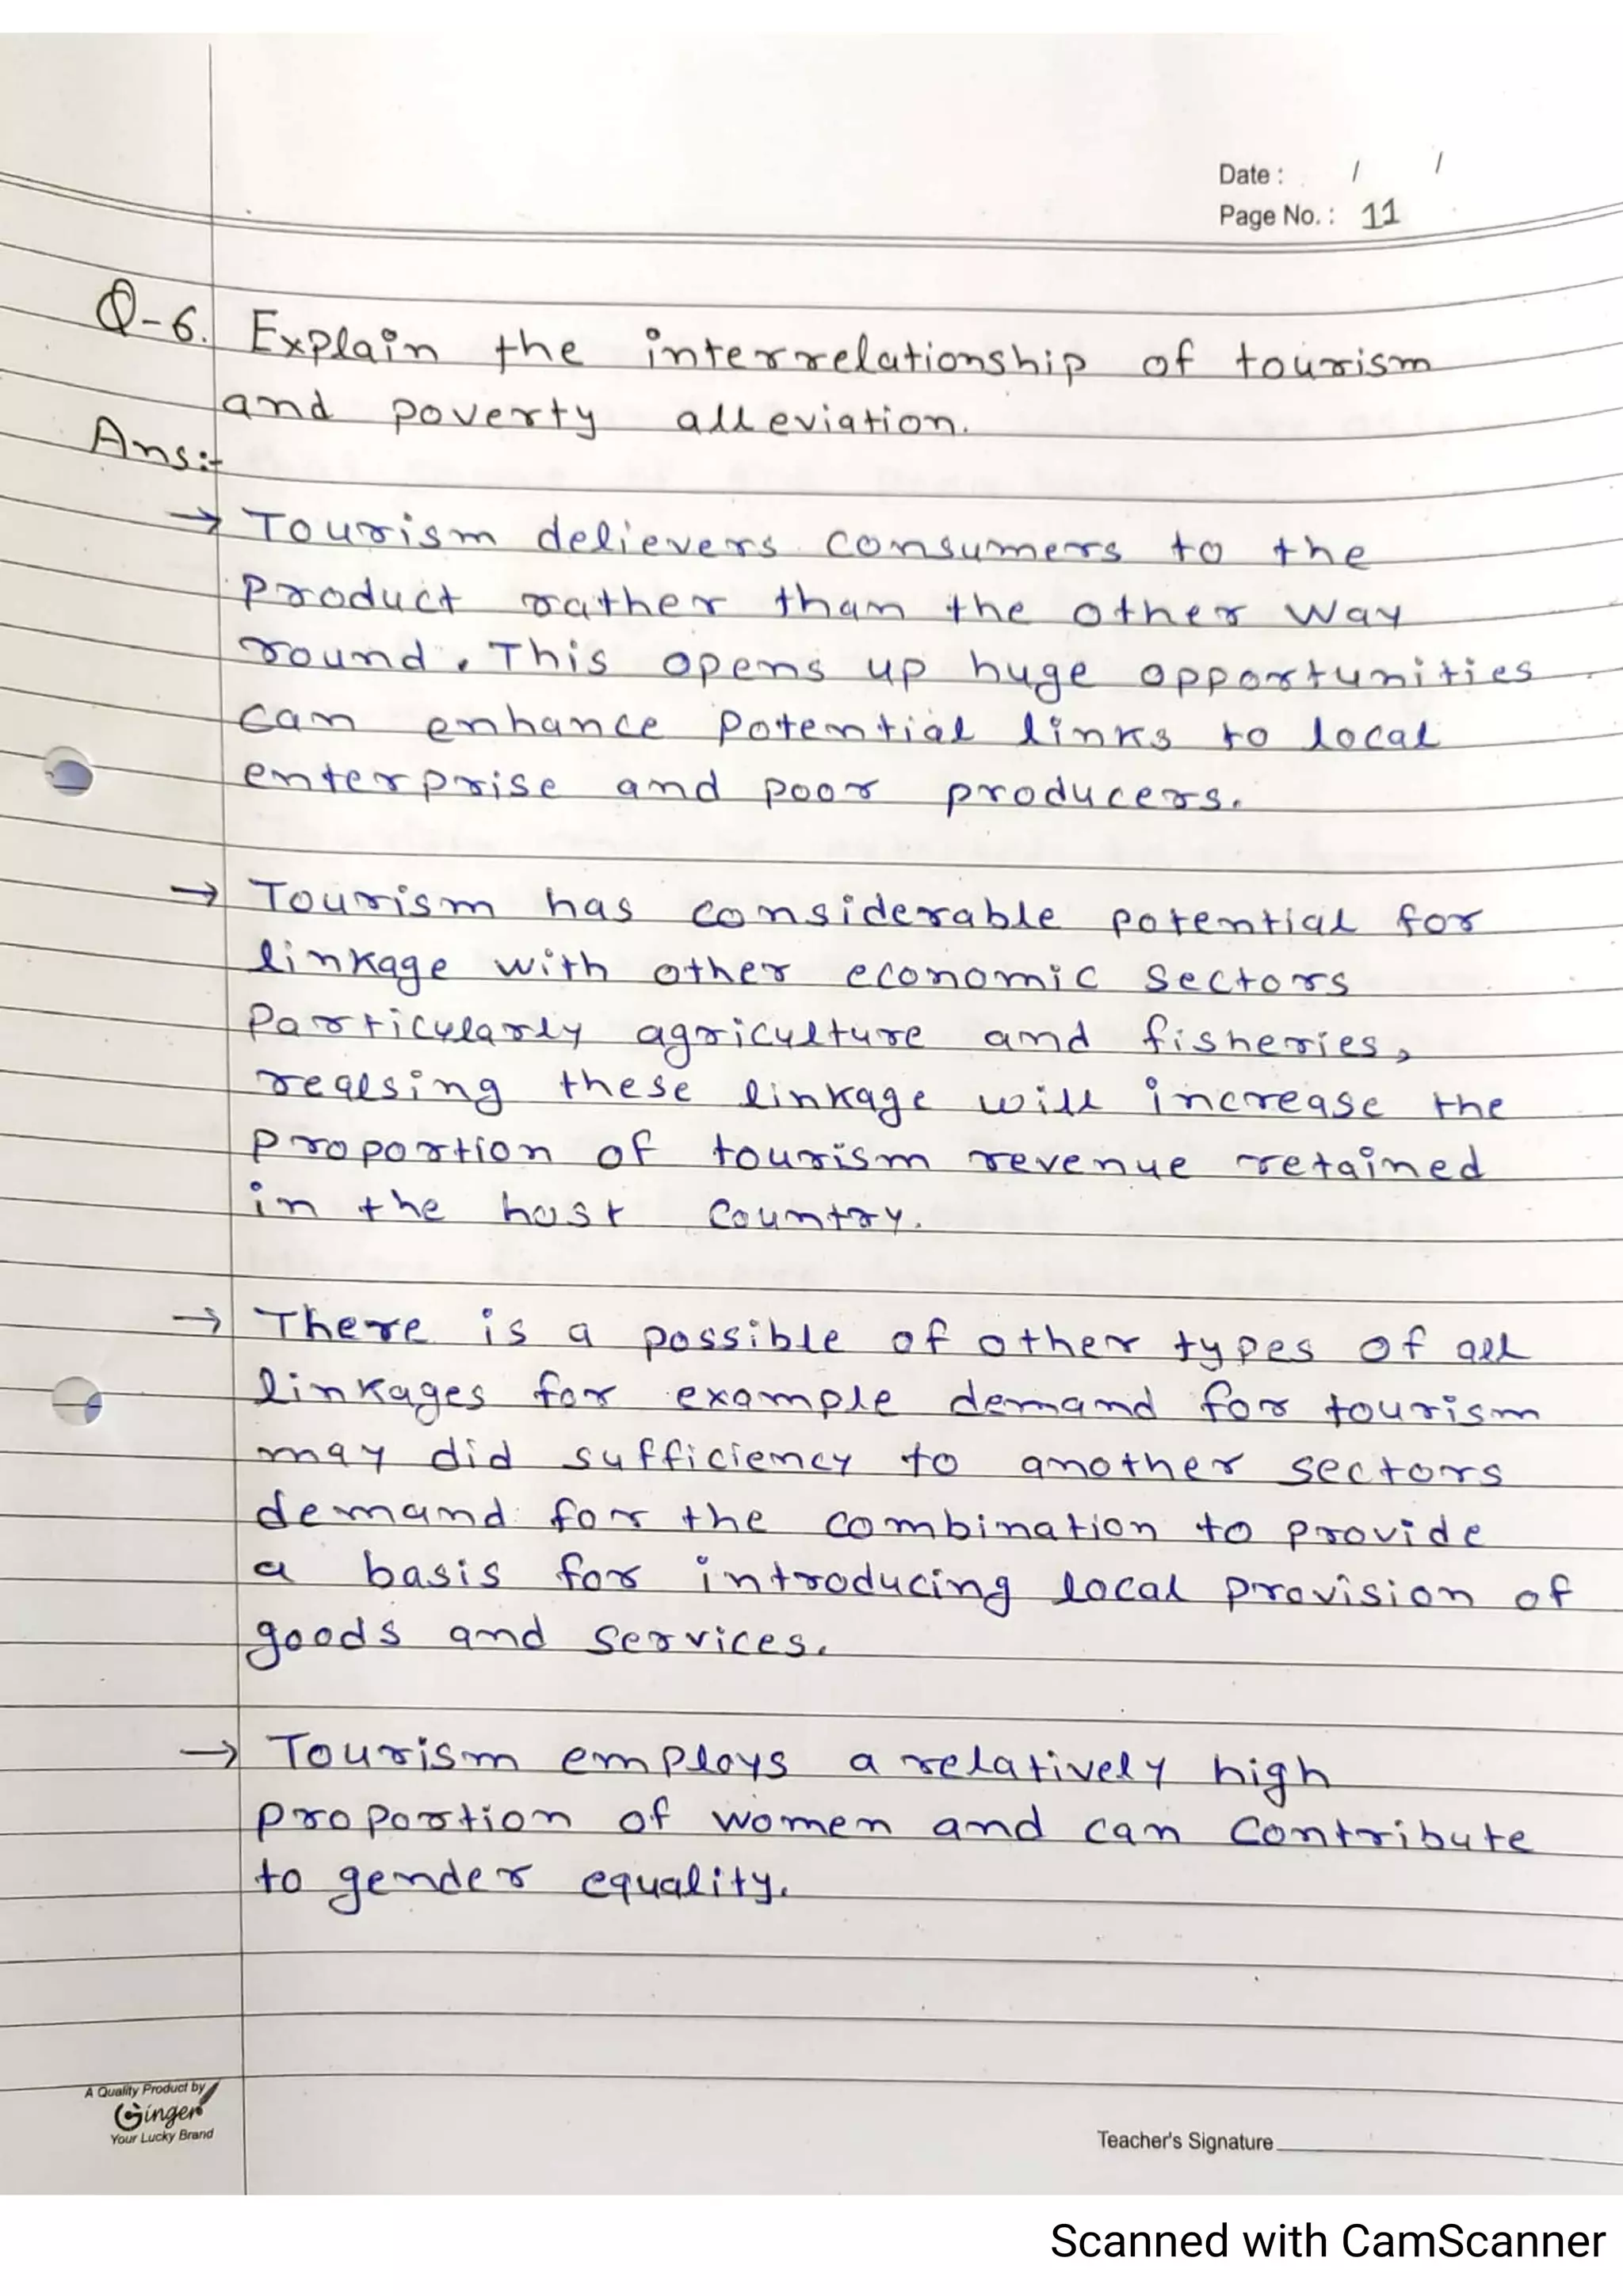 Date : / /
Page No. : 11
Q-6. Explain the interrelationship of tourism
and poverty alleviation.
Ans:-
→ Tourism delievers consumers to the
product rather than the other way
round. This opens up huge opportunities
can enhance potential links to local
enterprise and poor producers.
→ Tourism has considerable potential for
linkage with other economic sectors
Particularly agriculture and fisheries,
realsing these linkage will increase the
proportion of tourism revenue retained
in the host country.
→ There is a possible of other types of all
linkages for example demand for tourism
may did sufficiency to another sectors
demand for the combination to provide
a basis for introducing local provision of
goods and services.
→ Tourism employs a relatively high
proportion of women and can contribute
to gender equality.
A Quality Product by
Ginger
Your Lucky Brand
Teacher's Signature
Scanned with CamScanner